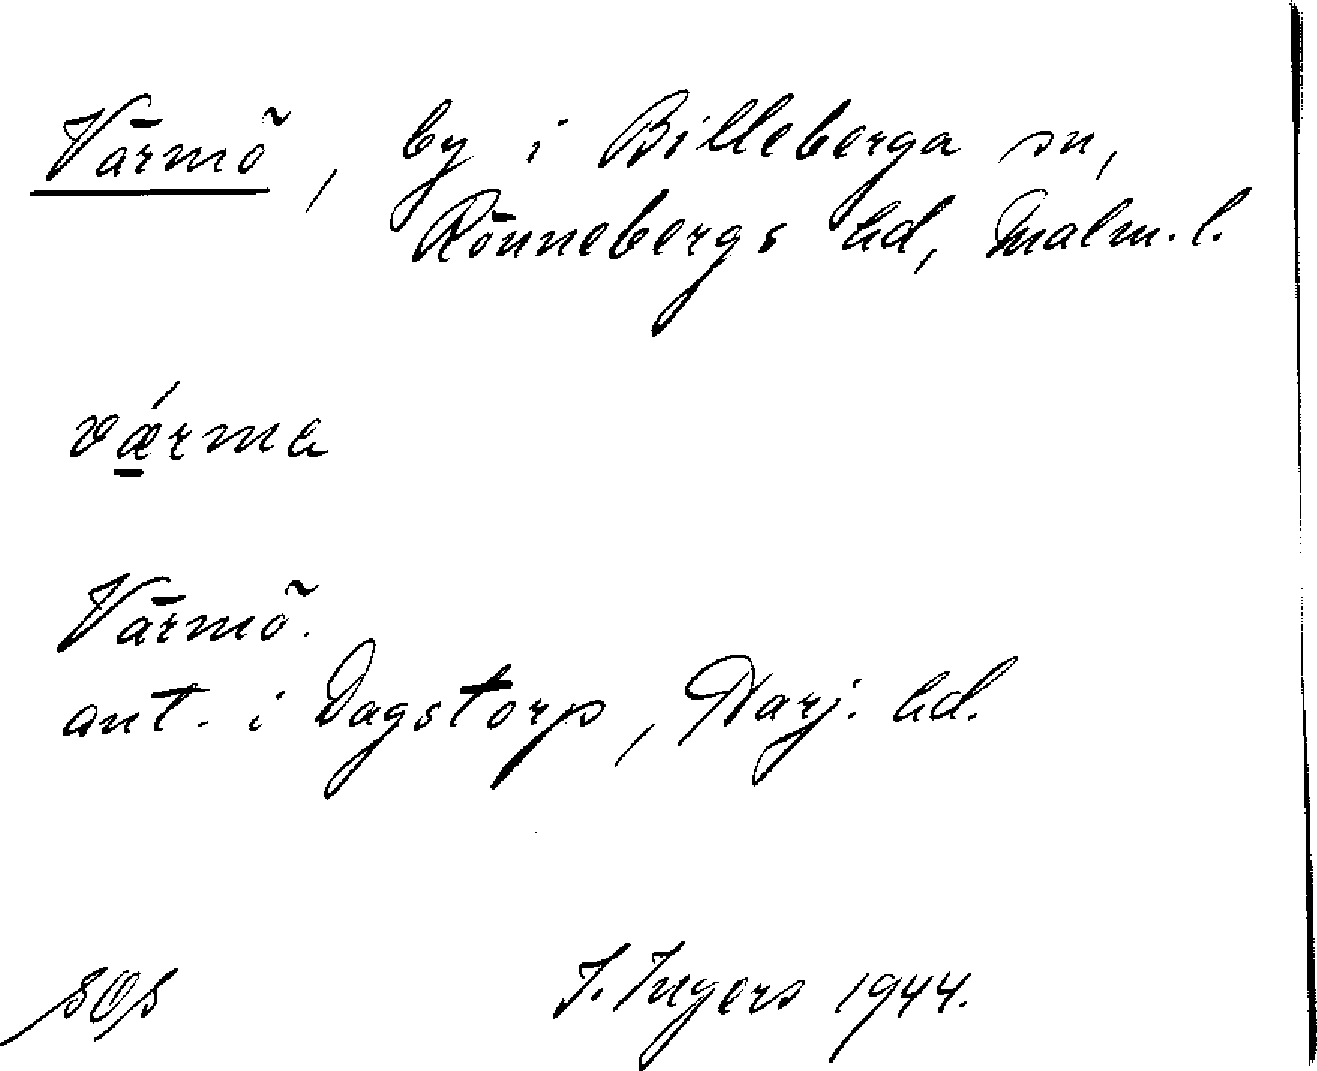 Värmö, by i Billeberga sn,
Rönnebergs hd, Malm. l.
vǽ̱rma
Värmö.
ant. i Dagstorp, Harj. hd.
SOS
I. Ingers 1944.